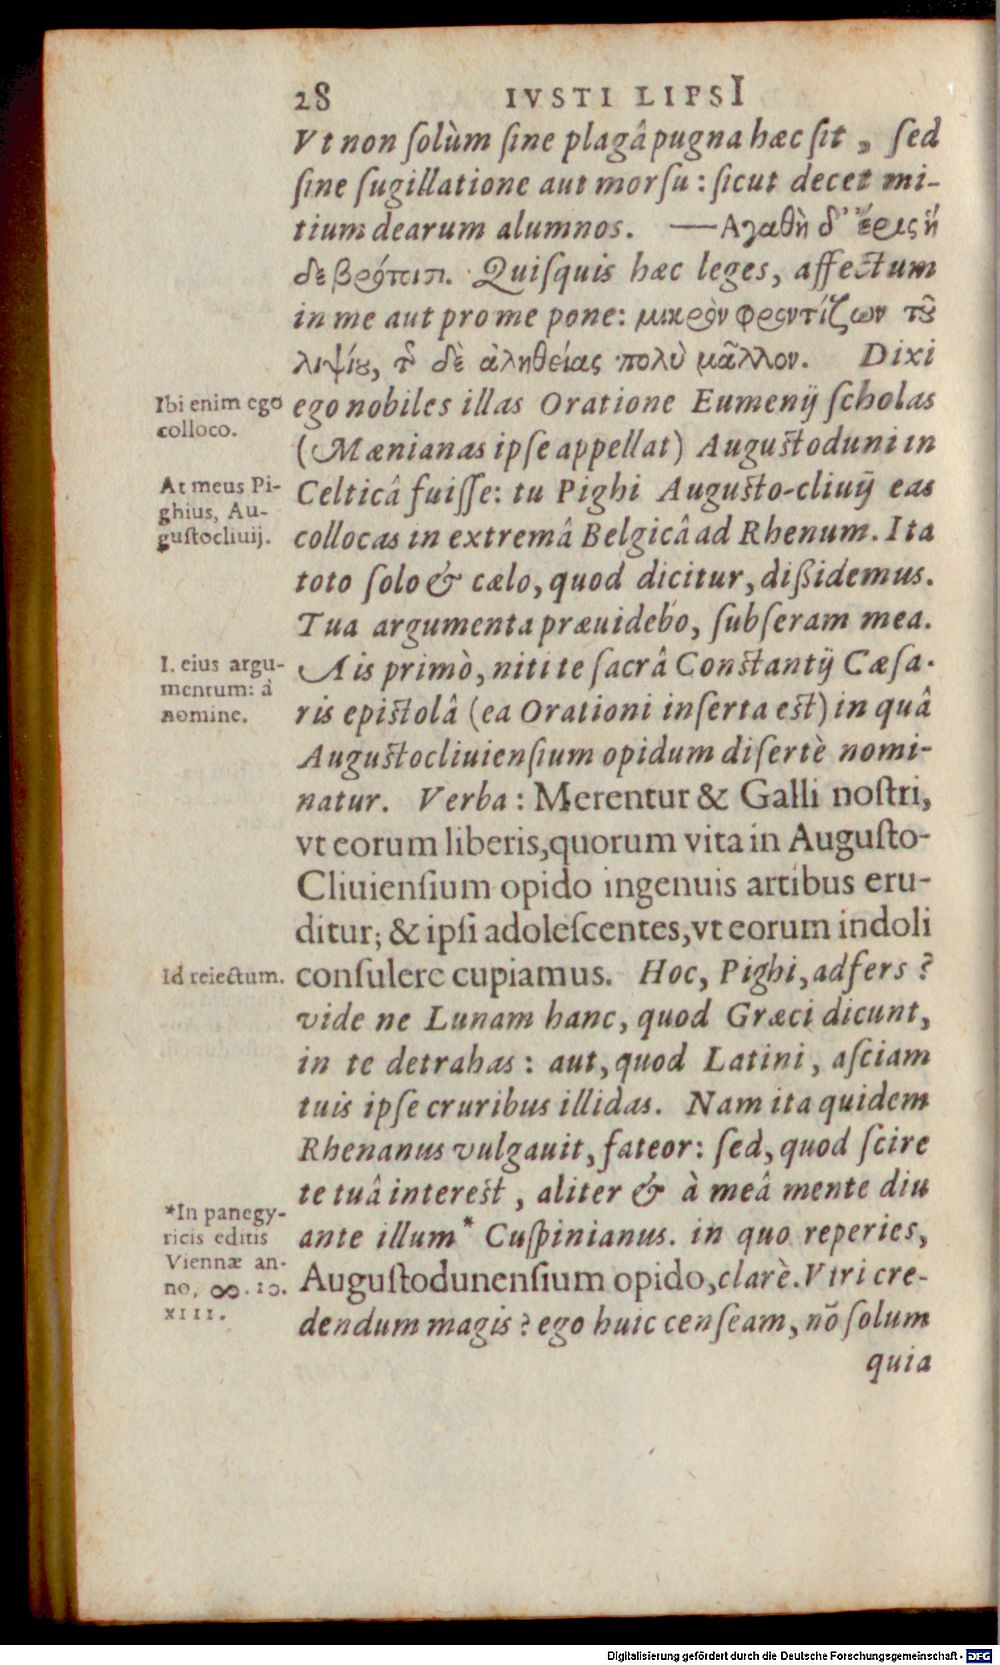 28 IVSTI LIPSI
Vt non ſolùm ſine plagâ pugna hæc ſit, ſed
ſine ſugillatione aut morſu: ſicut decet mi-
tium dearum alumnos. —Αγαθὴ δ' ἔρις ἥ
δε βρότοισι. Quiſquis hæc leges, affectum
in me aut pro me pone: μικρὸν φροντίζων τοῦ
λιψίου, τῆς δὲ ἀληθείας πολὺ μᾶλλον. Dixi
Ibi enim ego
colloco.
ego nobiles illas Oratione Eumenij ſcholas
(Mænianas ipſe appellat) Auguſtoduni in
At meus Pi-
ghius, Au-
guſtocliuij.
Celticâ fuiſſe: tu Pighi Auguſto-cliuij eas
collocas in extremâ Belgicâ ad Rhenum. Ita
toto ſolo & cælo, quod dicitur, dißidemus.
Tua argumenta præuidebo, ſubſeram mea.
I. eius argu-
mentum: à
nomine.
Ais primò, niti te ſacrâ Conſtantij Cæſa-
ris epiſtolâ (ea Orationi inſerta eſt) in quâ
Auguſtocliuienſium opidum diſertè nomi-
natur. Verba: Merentur & Galli noſtri,
vt eorum liberis, quorum vita in Auguſto-
Cliuienſium opido ingenuis artibus eru-
ditur; & ipſi adoleſcentes, vt eorum indoli
Id reiectum.
conſulere cupiamus. Hoc, Pighi, adfers?
vide ne Lunam hanc, quod Græci dicunt,
in te detrahas: aut, quod Latini, aſciam
tuis ipſe cruribus illidas. Nam ita quidem
Rhenanus vulgauit, fateor: ſed, quod ſcire
te tuâ intereſt, aliter & à meâ mente diu
*In panegy-
ricis editis
Viennæ an-
no, ∞. IↃ.
XIII.
ante illum* Cuſpinianus. in quo reperies,
Auguſtodunenſium opido, clarè. Vtri cre-
dendum magis? ego huic cenſeam, nõ ſolum
quia
Digitalisierung gefördert durch die Deutsche Forschungsgemeinschaft - DFG